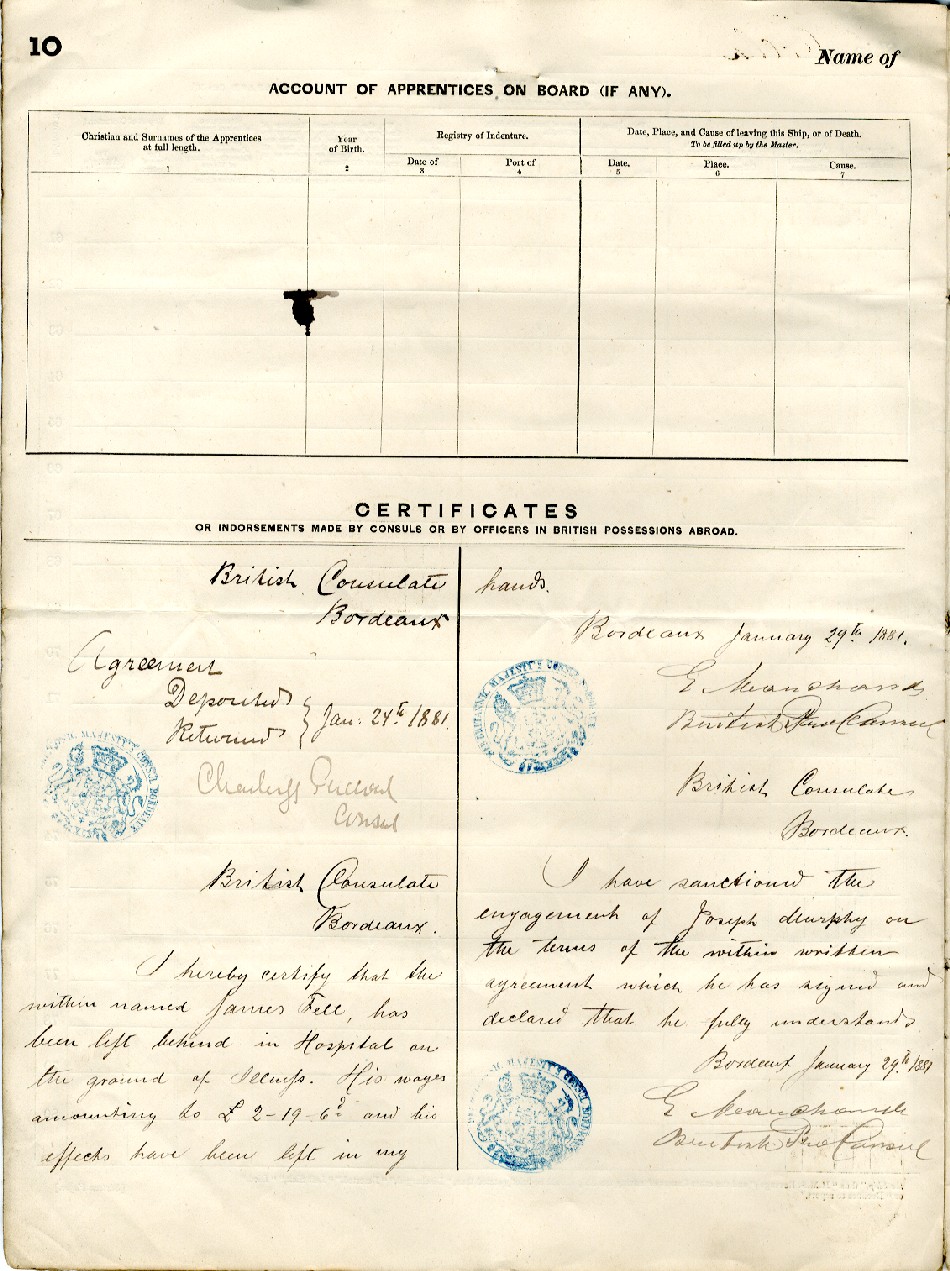 10
Name of
ACCOUNT OF APPRENTICES ON BOARD (IF ANY).
Christian and Surnames of the Apprentices
at full length.
1
Year
of Birth.
2
Registry of Indenture.
Date of
3
Port of
4
Date, Place, and Cause of leaving this Ship, or of Death.
To be filled up by the Master.
Date.
5
Place.
6
Cause.
7
CERTIFICATES
OR INDORSEMENTS MADE BY CONSULS OR BY OFFICERS IN BRITISH POSSESSIONS ABROAD.
British Consulate
Bordeaux
Agreement
Deposited
Returned
Jan: 24th 1881
Consul
British Consulate
Bordeaux.
I hereby certify that the
within named James Fell, has
been left behind in Hospital on
the ground of Illness. His wages
amounting to £ 2-19-6d and his
effects have been left in my
hands.
Bordeaux January 29th 1881.
E
British Pro Consul
British Consulate
Bordeaux.
I have sanctioned the
engagement of Joseph Murphy on
the terms of the within written
agreement which he has signed and
declared that he fully understands
Bordeaux January 29th 1881
E
British Pro Consul